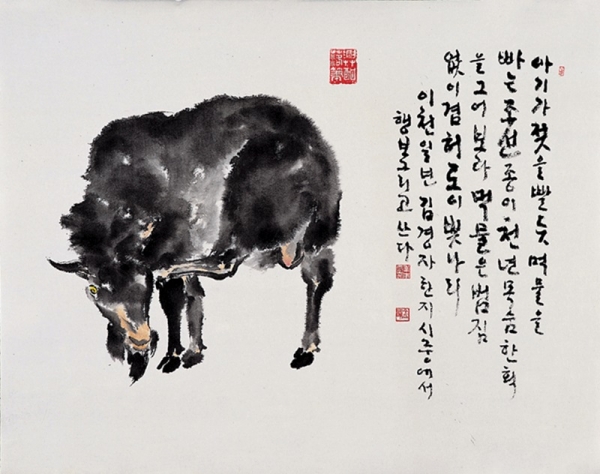 아기가 젖을 빨듯 먹물을
빠는 조선종이 천년 목숨 한 획
을 그어 보라 먹물은 번짐
없이 겸허로이 빛나리
이천일년 김경자 한지 시 중에서
행보 그리고 쓰다